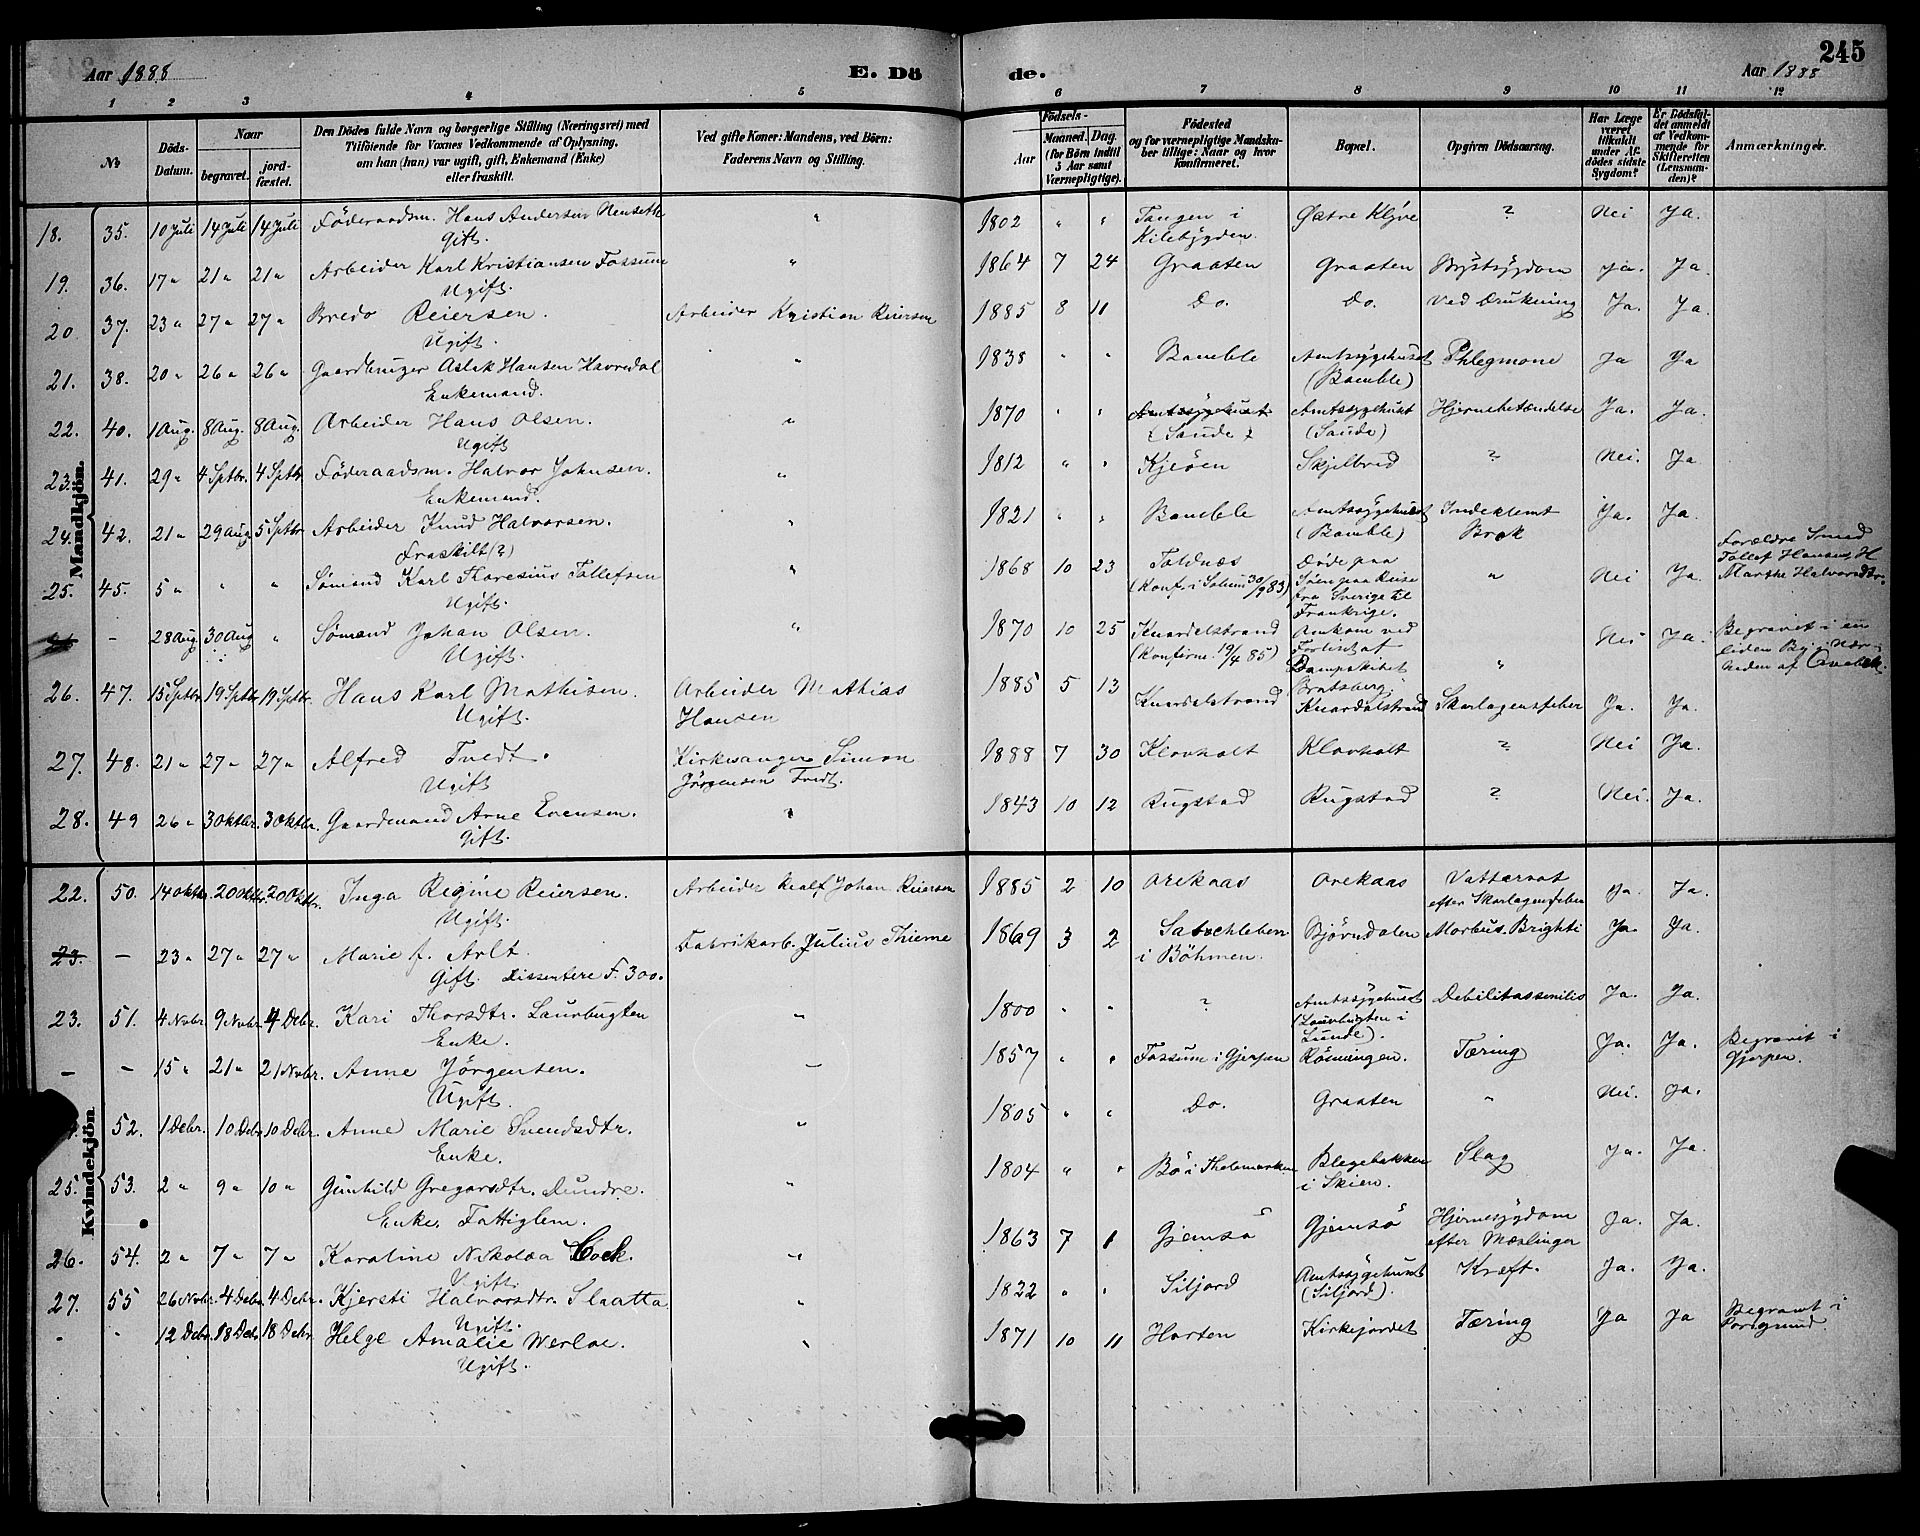 Aar 1888
E. Dö de.
Aar 1888
245
1 2 3 4 5 6 7 8 9 10 11 12
No
Döds-Datum.
Naar
begravet. jordfæstet.
Den Dödes fulde Navn og borgerlige Stilling (Næringsvei) med
Tilföiende for Voxnes Vedkommende af Oplysning,
om han (hun) var ugift, gift, Enkemand (Enke)
eller fraskilt.
Ved gifte Koner: Mandens, ved Börn:
Faderens Navn og Stilling.
Födsels-
Aar
Maaned. Dag.
(for Börn indtil
5 Aar samt
Værnepligtige).
Födested
og for værnepligtige Mandskaber tillige: Naar og hvor
konfirmeret.
Bopæl.
Opgiven Dödsaarsag.
Har Læge
været
tilkaldt
under Afdödes sidste
Sygdom?
Er Dödsfaldet anmeldt
af Vedkommende for
Skifteretten
(Lensmanden)?
Anmærkninger.
Mandkjön.
18. 35. 10 Juli 14 Juli 14 Juli Föderaadsm. Hans Andersen Nensette " 1802 " " Tangen i Østre Klyve ? Nei Ja.
Gift. Kilebygden.
19. 36. 17 " 21 " 21 " Arbeider Karl Kristiansen Fossum " 1864 7 24 Graaten Graaten Brystsygdom Ja. Ja.
Ugift.
20. 37. 23 " 27 " 27 " Bredo Reiersen. Arbeider Kristian Reiersen 1885 8 11 Do. Do. Ved Drukning Ja. Ja.
Ugift.
21. 38. 20 " 26 " 26 " Gaardbruger Aslak Hansen Havredal " 1838 " " Bamble Amtssygehuset Phlegmone Ja Ja
Enkemand. (Bamble)
22. 40. 1 Aug. 8 Aug. 8 Aug. Arbeider Hans Olsen. " 1870 " " Amtssygehuset Amtssygehuset Hjernebetændelse Ja. Ja.
Ugift (Saude) (Saude)
23. 41. 29 " 4 Sptbr. 4 Sptbr. Föderaadsm. Halvor Johnsen. " 1812 " " Kjeöen Skjelbred ? Nei. Ja.
Enkemand.
24. 42. 21 " 29 Aug 5 Sptbr Arbeider Knud Halvorsen. " 1821 " " Bamble Amtssygehuset Indeklemt Ja. Ja.
Fraskilt (?) (Bamble) Brok
25. 45. 5 " " " Sömand Karl Thoresius Tollefsen " 1868 10 23 Toldnæs Döde paa " Nei Ja. Forældre Smed
Ugift. (Konf. i Solum 30/9 83) Söen paa Reise Tollef Hansen, H
fra Sverige til Marthe Halvorsdtr.
Frankrige.
26 - 28 Aug 30 Aug " Sömand Johan Olsen. " 1870 10 25 Knardalstrand Omkom ved " Nei Ja. Begravet i en
Ugift. (Konfirm. 19/4 85) Forliset af liden By i Nær-
Dampskibet heden af
Bratsberg.
26. 47. 15 Sptbr 19 Sptbr 19 Sptbr. Hans Karl Mathisen. Arbeider Mathias 1885 5 13 Knardalstrand Knardalstrand Skarlagensfeber Ja. Ja.
Ugift. Hansen
27. 48. 21 " 27 " 27 " Alfred Tvedt. Kirkesanger Simon 1888 7 30 Klovholt Klovholt ? Nei Ja.
Ugift Jörgensen Tvedt.
28. 49 26 " 3 Oktbr. 3 Oktbr. Gaardmand Arne Evensen. " 1843 10 12 Rugstad Rugstad ? Nei. Ja.
Gift.
Kvindekjön.
22. 50. 14 Oktbr. 20 Oktbr. 20 Oktbr. Inga Regine Reiersen. Arbeider Realf Johan Reiersen 1885 2 10 Orekaas Orekaas Vattersot Ja. Ja.
Ugift. efter Skarlagensfeber
23. - 23 " 27 " 27 " Marie f. Arlt. Fabrikarb. Julius Thieme 1869 3 2 Satschleben Björndalen Morbus Brighti Ja. Ja.
Gift. Dissentere F. 300. i Böhmen.
23. 51. 4 Nvbr. 9 Nvbr. 4 Debr. Kari Thorsdtr. Laurbugten " 1800 " " ? Amtssygehuset Debilitas senilis Ja. Ja.
Enke. (Laurbugten i
Lunde).
- - 15 " 21 " 21 Nvbr. Anne Jörgensen. - 1857 " " Fossum i Gjerpen Rösningen. Tæring Ja. Ja. Begravet i
Ugift. Gjerpen.
52. 1 Debr. 10 Debr 10 Debr. Anne Marie Svendsdtr. " 1805 " " Do. Graaten " Nei. Ja.
Enke.
25. 53. 2 " 9 " 10 " Gunhild Gregarsdtr. Dundre. " 1804 " " Bö i Thelemarken Blegebakken Slag Ja. Ja.
Enke. Fattiglem. i Skien.
26. 54. 2 " 7 " 7 " Karoline Nikolea Cock. " 1863 7 1 Gjemsö Gjemsö Hjernesygdom Ja. Ja.
Ugift. efter Mæslinger
27. 55 26 Nvbr. 4 Debr. 4 Debr. Kjersti Halvorsdtr. Slaatta " 1822 " " Siljord Amtssygehuset Kræft. Ja. Ja.
Ugift. (Siljord).
- " 12 Debr. 18 Debr 18 Debr. Helge Amalie Werloe. " 1871 10 11 Horten Kirkejordet Tæring Ja Ja Begravet i
Ugift. Porsgrund.